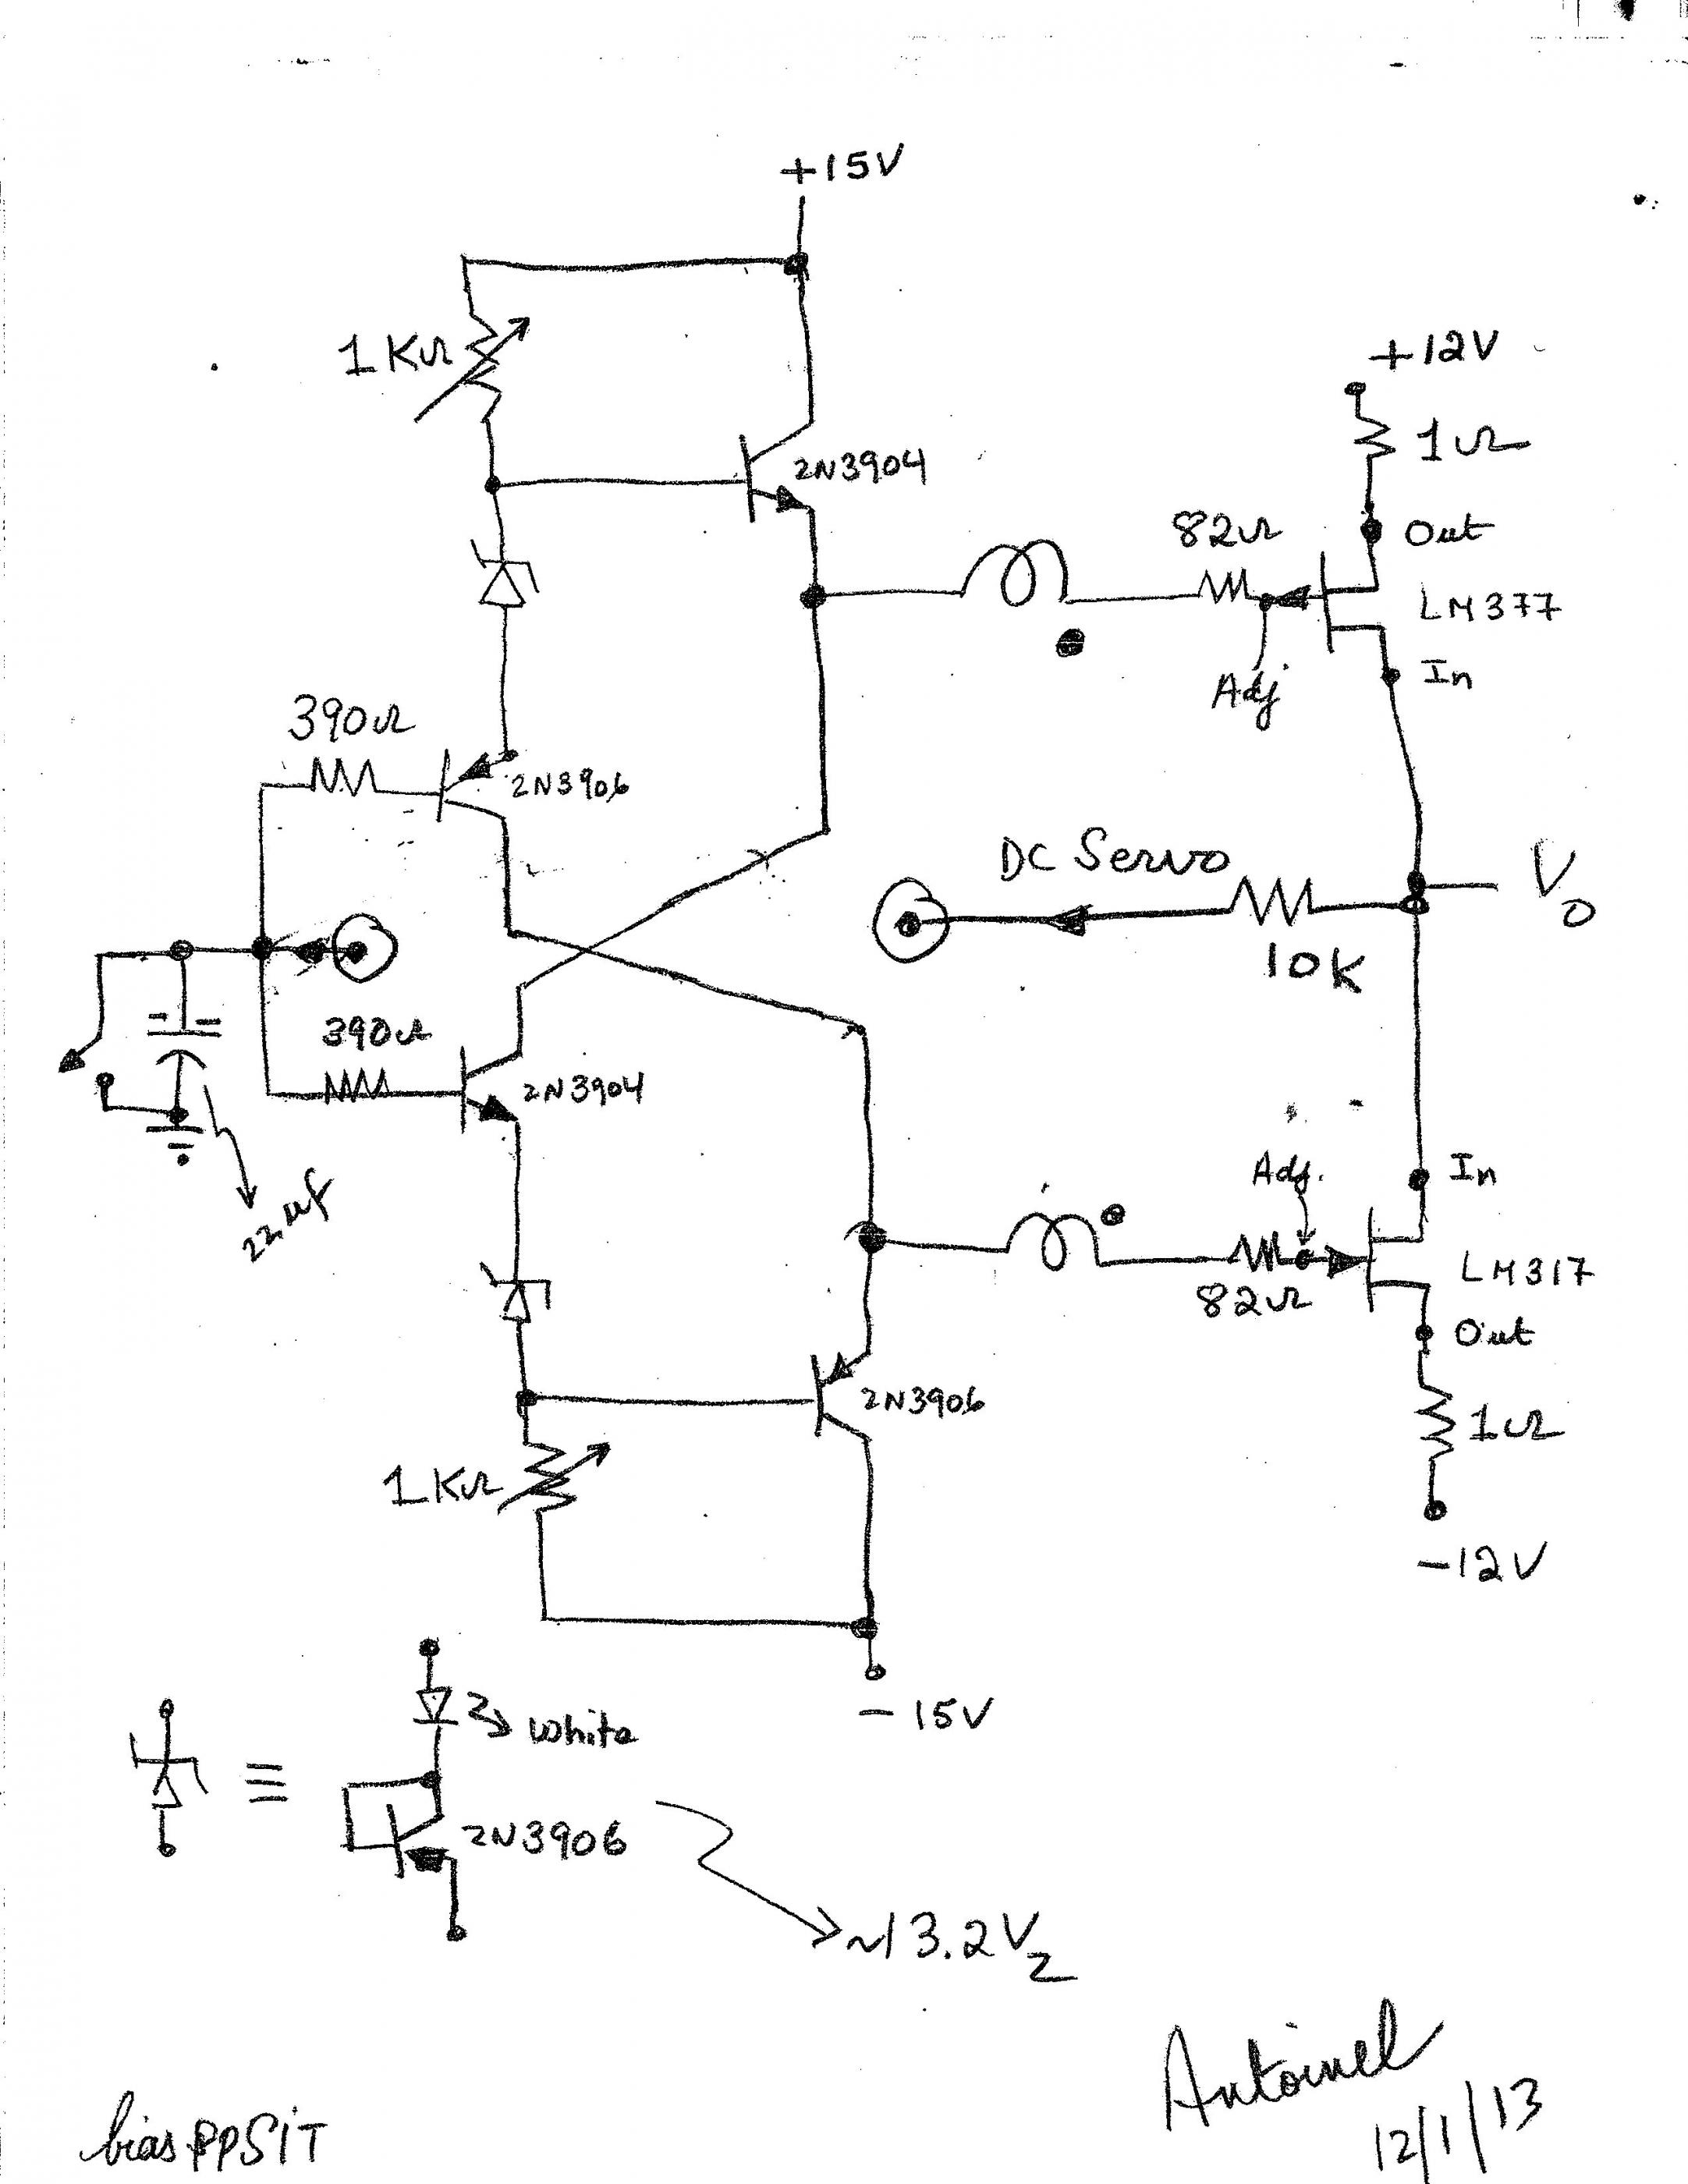 +15V
1KΩ
+12V
1Ω
2N3904
82Ω
Out
LM377
Adj
In
390Ω
2N3906
DC Servo
Vo
10K
390Ω
2N3904
22µf
Adj.
In
82Ω
LM317
Out
2N3906
1Ω
1KΩ
-12V
-15V
White
≡
2N3906
~13.2Vz
Antoinel
12/1/13
bias PPSIT